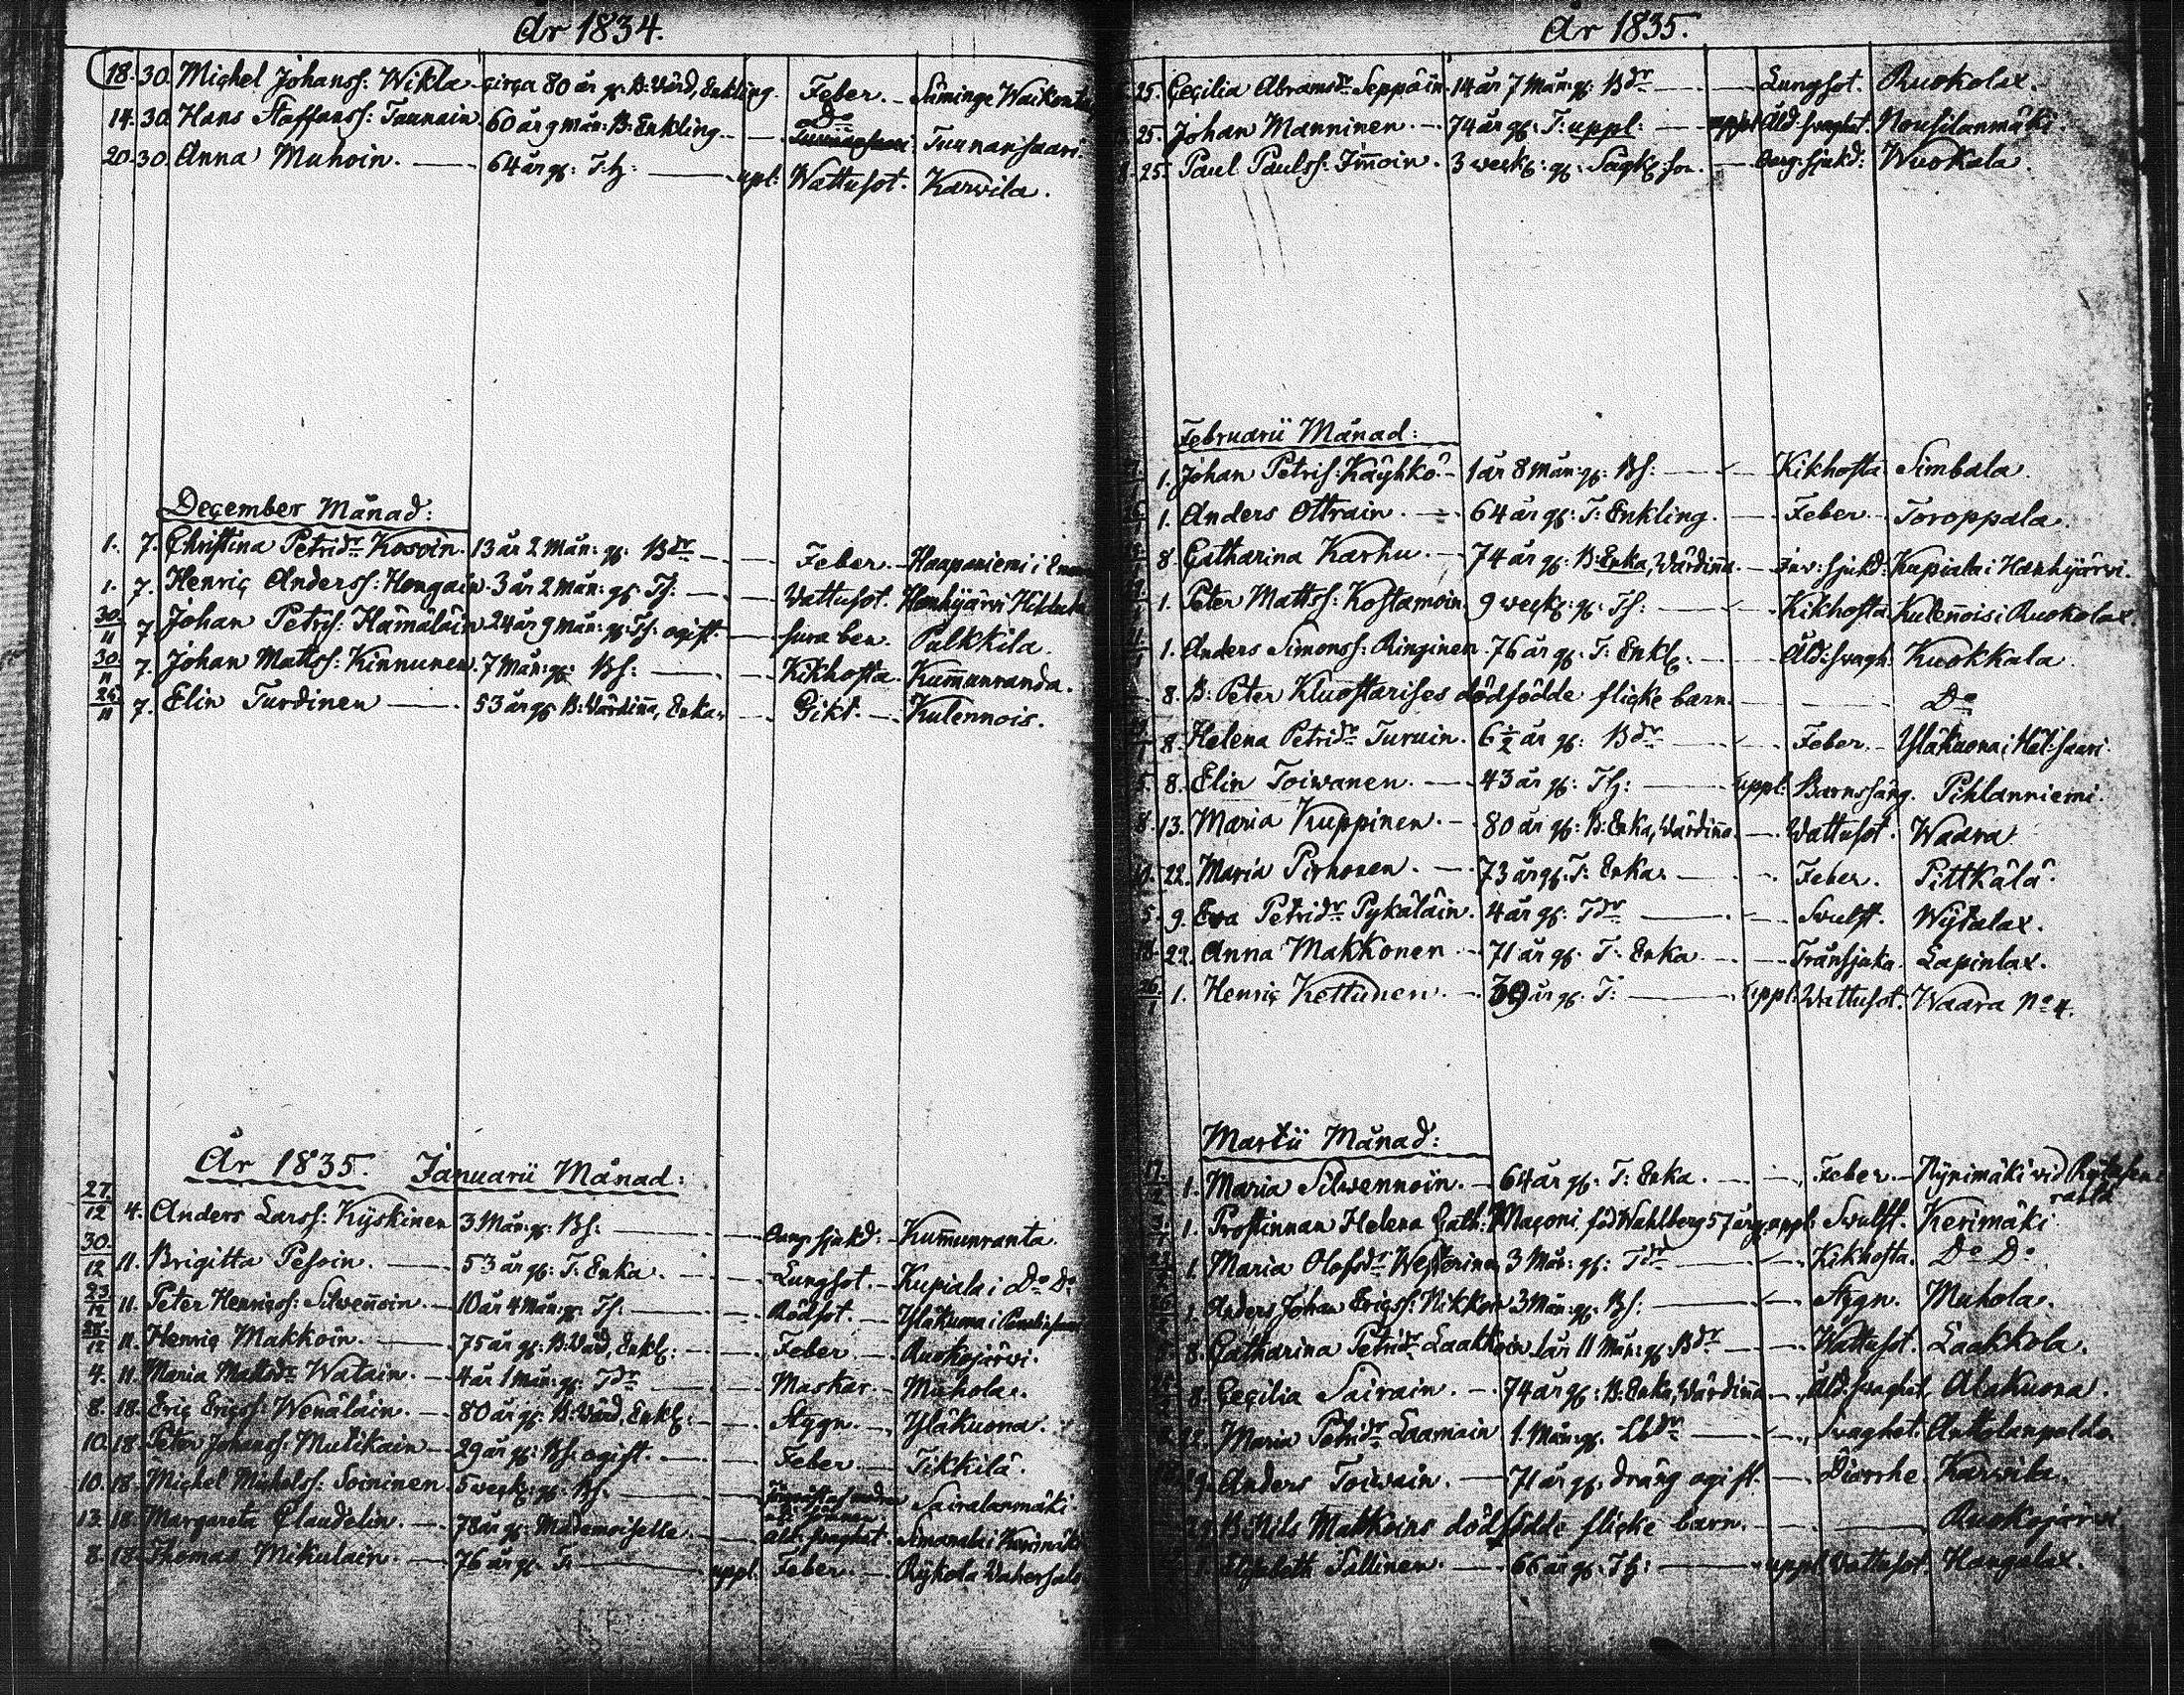 År 1834.
18. 30. Michel Johanss: Wikla circa 80 år gl: B: Värd, Enkling. Feber. Säminge
14. 30. Hans Staffanss: Taunain 60 år 9 mån: B: Enkling Do Tunnansaari.
20. 30. Anna Muhoin. 64 år gl: upl: Wattusot. Karvila.
December Månad:
1. 7. Christina Petridr Kosoin. 13 år 2 Mån: gl: Bdr Feber. Haapaniemi i
1. 7. Henric Anderss: Hongain. 3 år 2 Mån: gl: Ts: Vattusot. Hanhijärvi
30/11 7. Johan Petris: Hämäläin 24 år 9 Mån: gl: Ts: ogift. sura ben. Pulkkila.
30/11 7. Johan Matss: Kinnunen. 7 Mån: gl: Bs: Kikhosta. Kum̄unranda.
7. Elin Turdinen 53 år gl: B: Värdin̄a, Enka. Gikt. Kulennois.
År 1835. Januarii Månad:
27/12 4. Anders Larss: Kyskinen 3 Mån: gl: Bs: sjukd: Kum̄unranta
30/12 11. Brigitta Pesoin. 53 år gl: T: Enka. Lungsot. Kupiala i Do Do
23/12 11. Peter Henricss: Silwen̄oin. 10 år 4 Mån: gl: Ts: Rödsot. Yläkuona i
11. Henric Makkoin. 75 år gl: B: Värd, Enkl: Feber Ruokojärvi.
4. 11. Maria Matsdr Watain. 4 år 1 Mån: gl: Tdr Maskar. Muhola.
8. 18. Eric Ericss: Wenäläin. 80 år gl: B: Värd, Enkl: Stygn. Yläkuona.
10. 18. Peter Johanss: Mutikain 29 år gl: Bs: ogift. Feber Tikkilä.
10. 18. Michel Michelss: Soininen 5 weck: gl: Bs: Sairalanmäki.
13. 18. Margareta Claudelin. 78 år gl: Mademoiselle
8. 18. Thomas Mikulain. 76 år gl: T: uppl. Feber. Rykola
År 1835.
25. Cecilia Abramsdr Seppäin. 14 år 7 Mån: gl: Bdr Lungsot. Ruokolax.
25. Johan Manninen. 74 år gl: T: uppl: Åld: svaghet. Nousilanmäki.
25. Paul Paulss: Im̄oin. 3 weck: gl: son. sjukd: Wuokala.
Februarii Månad:
1. Johan Petris: Käyhkö. 1 år 8 Mån: gl: Bs: Kikhosta Simbala.
1. Anders Ottrain. 64 år gl: T: Enkling. Feber. Toroppala.
8. Catharina Karhu. 74 år gl: B: Enka, Värdin̄a. Inv: sjukd: Kupiala i Hanhijärvi.
1. Peter Matss: Kostamoin. 9 weck: gl: Ts: Kikhosta Kulen̄ois i Ruokolax.
1. Anders Simonss: Ringinen. 76 år gl: T: Enkl: Åld: svagh: Kuokkala.
8. B: Peter Kluostarises dödfödde flicke barn. Do
8. Helena Petridr Turuin. 6 1/2 år gl: Bdr Feber. Yläkuona i
5. 8. Elin Toiwanen. 43 år gl: uppl: Barnsäng. Pihlanniemi.
8. 13. Maria Kuppinen. 80 år gl: B: Enka, Värdin̄a. Wattusot. Waara
22. Maria Pirhonen. 73 år gl: T: Enka. Feber. Pittkälä.
5. 9. Eva Petridr Pykäläin. 4 år gl: Tdr Swulst. Wytalax.
22. Anna Makkonen 71 år gl: T: Enka Trånsjuka. Lapinlax.
1. Henric Kettunen. 39 år gl: T: uppl: Wattusot. Waara No 4.
Martii Månad:
1. Maria Silwennoin. 64 år gl: T: Enka. Feber. Rynimäki vid
ranta
1. Prostinnan Helena Cath: Maconi, föd Wahlberg 57 år gl: uppl: Swulst. Kerimäki
1. Maria Olofsdr Westerinen 3 Mån: gl: Tdr Kikhosta. Do Do
1. Anders Johan Ericss: Nikkon 3 Mån: gl: Bs: Stygn. Muhola.
8. Catharina Petridr Laakkoin 1 år 11 Mån: gl: Bdr Wattusot. Laakkola.
8. Cecilia Sairain. 74 år gl: B: Enka, Värdin̄a Åld: svaghet. Alakuona.
Maria Petridr Laamain 1. Mån: gl. Svaghet.
Anders Toiwain. 71 år gl. dräng ogift. Diarrhe. Karvila.
B: Nils Makkoins dödfödde flicke barn. Ruokojärvi
Elisabeth Sallinen. 66 år gl: uppl: Wattusot. Hangalax.